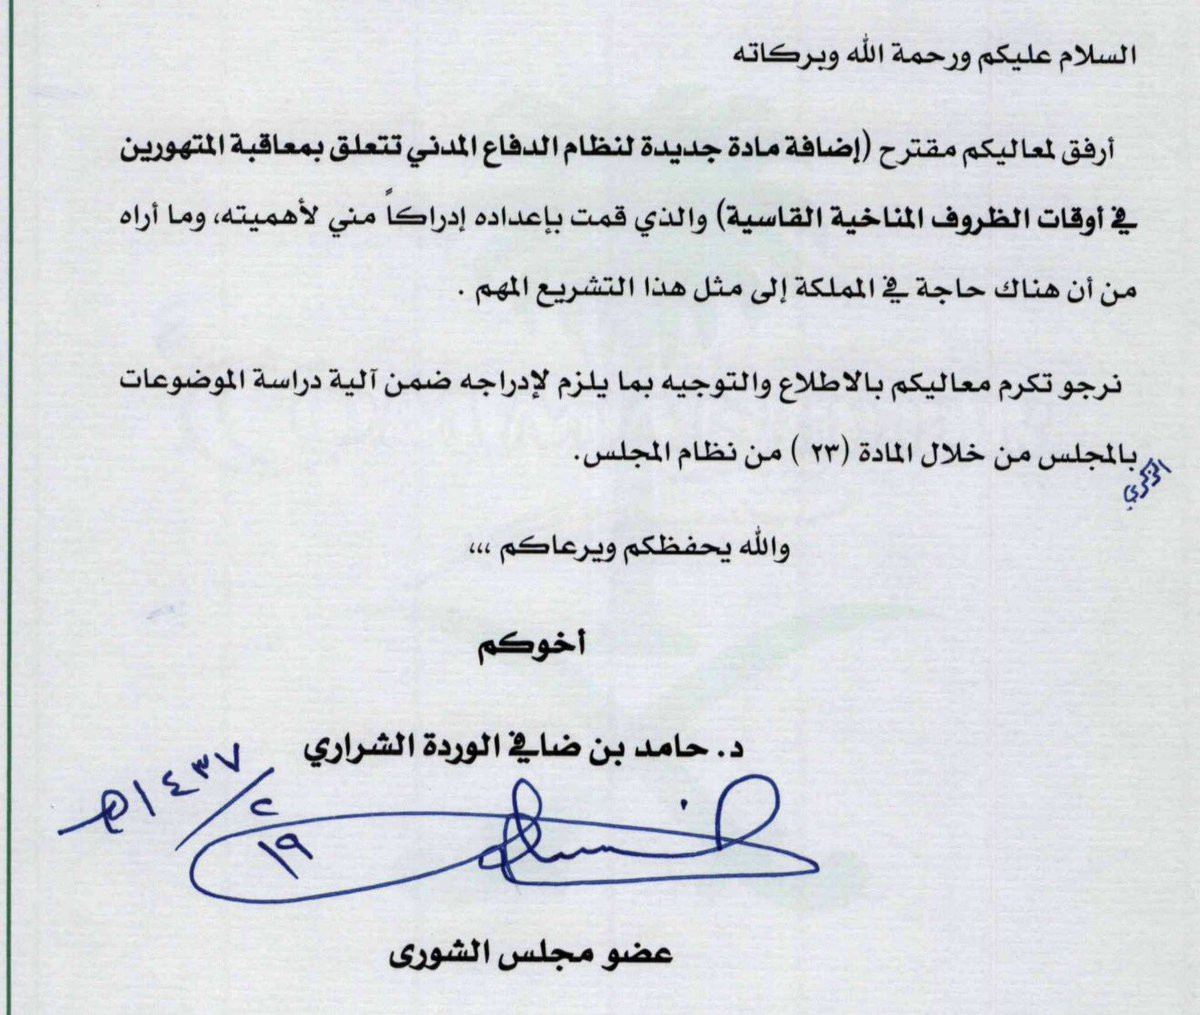 السلام عليكم ورحمة الله وبركاته
أرفق لمعاليكم مقترح (إضافة مادة جديدة لنظام الدفاع المدني تتعلق بمعاقبة المتهورين
في أوقات الظروف المناخية القاسية) والذي قمت بإعداده إدراكاً مني لأهميته، وما أراه
من أن هناك حاجة في المملكة إلى مثل هذا التشريع المهم .
نرجو تكرم معاليكم بالاطلاع والتوجيه بما يلزم لإدراجه ضمن آلية دراسة الموضوعات
بالمجلس من خلال المادة (٢٣ ) من نظام المجلس.
والله يحفظكم ويرعاكم ،،،
أخوكم
د. حامد بن ضافي الوردة الشراري
١٩/٢/١٤٣٧هـ
عضو مجلس الشورى